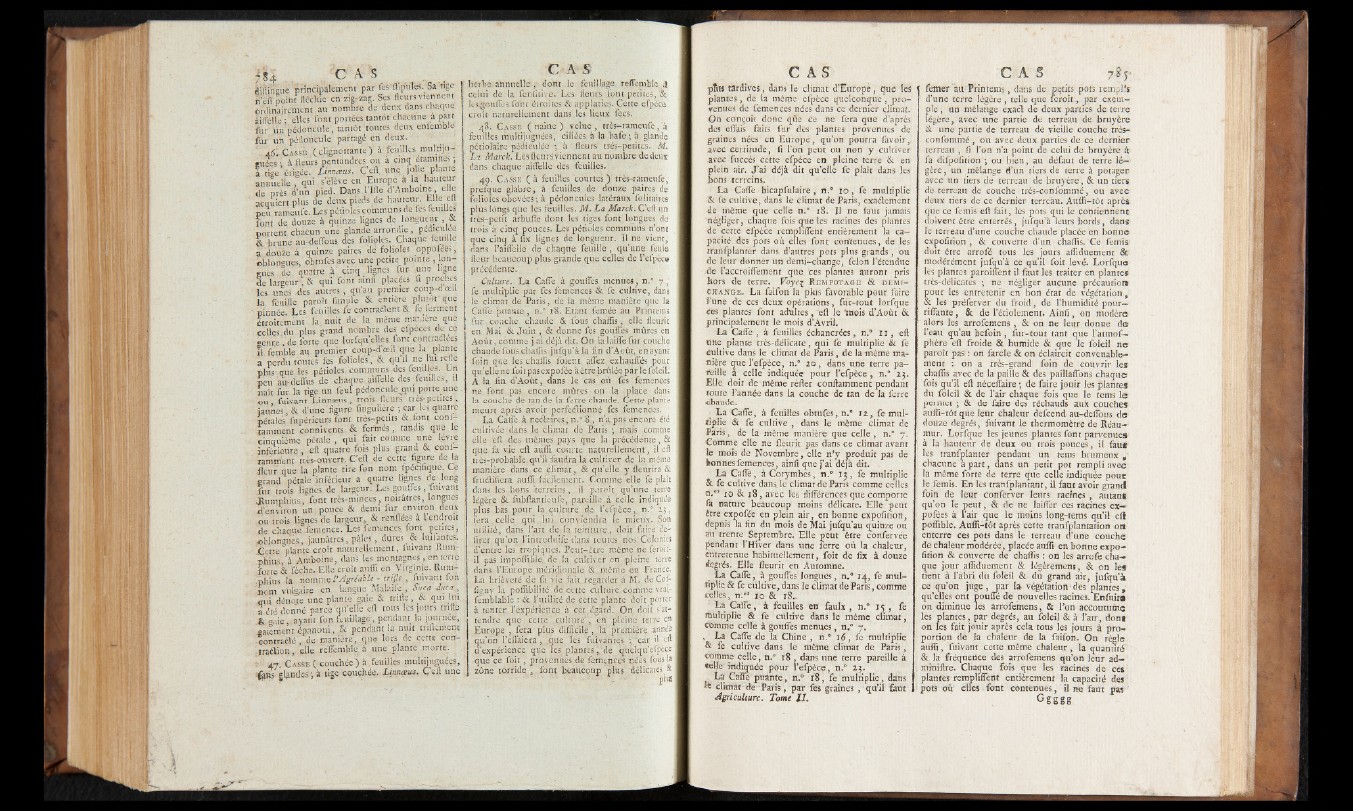 784 C A S
distingue principalement par ses stipules. Sa tige
n'est point fléchie en zig-zag. Ses fleurs viennent
ordinairement au nombre de deux dans chaque
aisselle ; elles sont portées tantôt chacune à part
sur un pédoncule, tantôt toutes deux ensemble
sur un pédoncule partagé en deux.
46. CASSE ( clignottante ) à feuilles multiju-
guées, à fleurs pentandres ou à cinq étamines ;
à tige érigée. Linnæus. C'est une jolie plante
annuelle, qui s'élève en Europe à la hauteur
de près d'un pied. Dans l'Isle d'Amboine, elle
acquiert plus de deux pieds de hauteur. Elle est
peu rameuse. Les pétioles communs de ses feuilles
sont de douze à quinze lignes de longueur, &
portent chacun une glande arrondie, pédiculée
& brune au-dessous des folioles. Chaque feuille
a douze à quinze paires de folioles opposées,
oblongues, obtuses avec une petite pointe, lon-
gues de quatre à cinq lignes sur une ligne
de largeur, & qui sont ainsi placées si proches
les unes des autres, qu'au premier coup-d'œil
la feuille paroît simple & entière plutôt que
pinnée. Les feuilles se contractent & se ferment
étroitement la nuit de la même manière que
celles du plus grand nombre des espèces de ce
genre, de sorte que lorsqu'elles sont contractées
il semble au premier coup-d'œil que la plante
a perdu toutes ses folioles, & qu'il ne lui reste
plus que les pétioles communs des feuilles. Un
peu au-dessus de chaque aisselle des feuilles, il
naît sur la tige un seul pédoncule qui porte une
ou, suivant Linnæus, trois fleurs très-petites,
jaunes, & d'une figure singulière ; car les quatre
pétales supérieurs sont très-petits & sont cons-
tamment connivents & fermés, tandis que le
cinquième pétale, qui fait comme une lèvre
inférieure, est quatre fois plus grand & cons-
tamment très-ouvert. C'est de cette figure de la
fleur que la plante tire son nom spécifique. Ce
grand pétale inférieur a quatre lignes de long
sur trois lignes de largeur. Les gousses, suivant
Rumphius, sont très-minces, noirâtres, longues
d'environ un pouce & demi sur environ deux
ou trois lignes de largeur, & renflées à l'endroit
de chaque semence. Les semences sont petites,
oblongues, jaunâtres, pâles, dures & luisantes.
Cette plante croît naturellement, suivant Rum-
phius, à Amboine, dans les montagnes, en terre
forte & sèche. Elle croît aussi en Virginie. Rum-
phius la nomme l'Agréable - triste, suivant son
nom vulgaire en langue Malaise,
qui dénote une plante gaie & triste, & qui lui
a été donné parce qu'elle est tous les jours triste
& gaie, ayant son feuillage, pendant la journée,
gaiement épanoui, & pendant la nuit tristement
contracté, de manière, que lors de cette con-
traction, elle ressemble à une plante morte.
47. CASSE ( couchée ) à feuilles multijuguées,
sans glandes ; à tige couchée. Linnæus. C'est une
C A S
herbe annuelle, dont le feuillage ressemble à
celui de la sensitive. Les fleurs sont petites, &
les gousses sont étroites & applaties. Cette espèce
croît naturellement dans les lieux secs.
48. CASSE ( naine ) velue, très-rameuse, à
feuilles multijuguées, ciliées à la base ; à glande
pétiolaire pédiculée ; à fleurs très-petites. M.
La Marck. Les fleurs viennent au nombre de deux
dans chaque aisselle des feuilles.
49. CASSE ( à feuilles courtes ) très-rameuse,
presque glabre, à feuilles de douze paires de
folioles obovées ; à pédoncules latéraux solitaires
plus longs que les feuilles. M. La Marck. C'est un
très-petit arbuste dont les tiges sont longues de
trois à cinq pouces. Les pétioles communs n'ont
que cinq à six lignes de longueur. il ne vient,
dans l'aisselle de chaque feuille, qu'une seule
fleur beaucoup plus grande que celles de l'espèce
précédente.
Culture. La Casse à gousses menues, n.° 7,
se multiplie par ses semences & se cultive, dans
le climat de Paris, de la même manière que la
Casse puante, n.° 18. Etant semée au Printems
sur couche chaude & sous chassis, elle fleurit
en Mai & Juin, & donne ses gousses mûres en
Août, comme j'ai déjà dit. On la laisse sur couche
chaude sous chassis jusqu'à la fin d'Août, en ayant
soin que les chassis soient assez exhaussés pour
qu'elle ne soit pas exposée à être brûlée par le soleil.
A la fin d'Août, dans le cas où ses semences
ne sont pas encore mûres on la place dans
la couche de tan de la serre chaude. Cette plante
meurt après avoir perfectionné ses semences.
La Casse à nectaires, n.° 8, n'a pas encore été
cultivée dans le climat de Paris, mais comme
elle est des mêmes pays que la précédente, &
que sa vie est aussi courte naturellement, il est
très-probable qu'il faudra la cultiver de la même
manière dans ce climat, & qu'elle y fleurira &
fructifiera aussi facilement. Comme elle se plaît
dans les bons terreins, il paroît qu'une terre
légère & substantieuse, pareille à celle indiquée
plus bas pour la culture de l'espèce, n.° 23,
sera celle qui lui conviendra le mieux. Son
utilité, dans l'art de la teinture, doit faire de-
sirer qu'on l'introduise dans toutes nos Colonies
d'entre les tropiques. Peut-être même ne seroit-
il pas impossible de la cultiver en pleine terre
dans l'Europe méridionale & même en France.
La brièveté de sa vie fait regarder à M. de Cos-
signy la possibilité de cette culture comme vrai-
semblable : & l'utilité de cette plante doit porter
à tenter l'expérience à cet égard. On doit s'at-
tendre que cette culture, en pleine terre en
Europe, sera plus difficile, la première année
qu'on l'essaiera, que les suivantes ; car il est
d'expérience que les plantes, de quelqu'espèce
que ce soit, provenues de semences nées sous la
zône torride, sont beaucoup plus délicates &
plus
C A S
plus tardives, dans le climat d'Europe, que les
plantes, de la même espèce quelconque, pro-
venues de semences nées dans ce dernier climat.
On conçoit donc que ce ne sera que d'après
des essais faits sur des plantes provenues de
graines nées en Europe, qu'on pourra savoir,
avec certitude, si l'on peut ou non y cultiver
avec succès cette espèce en pleine terre & en
plein air. J'ai déjà dit qu'elle se plaît dans les
bons terreins.
La Casse bicapsulaire, n.° 10, se multiplie
& se cultive, dans le climat de Paris, exactement
de même que celle n.° 18. Il ne faut jamais
négliger, chaque fois que les racines des plantes
de cette espèce remplissent entièrement la ca-
pacité des pots où elles sont contenues, de les
transplanter dans d'autres pots plus grands, ou
de leur donner un demi-change, selon l'étendue
de l'accroissement que ces plantes auront pris
hors de terre. Voyez REMPOTAGE & DEMI-
CHANGE. La saison la plus favorable pour faire
l'une de ces deux opérations, sur-tout lorsque
ces plantes sont adultes, est le mois d'Août &
principalement le mois d'Avril.
La Casse, à feuilles échancrées, n.° 11, est
une plante très-délicate, qui se multiplie & se
cultive dans le climat de Paris, de la même ma-
nière que l'espèce, n.° 20, dans une terre pa-
reille à celle indiquée pour l'espèce, n.° 23.
Elle doit de même rester constamment pendant
toute l'année dans la couche de tan de la serre
chaude.
La Casse, à feuilles obtuses, n.° 12, se mul-
tiplie & se cultive, dans le même climat de
Paris, de la même manière que celle, n.° 7.
Comme elle ne fleurit pas dans ce climat avant
le mois de Novembre, elle n'y produit pas de
bonnes semences, ainsi que j'ai déjà dit.
La Casse, à Corymbes, n.° 13, se multiplie
& se cultive dans le climat de Paris comme celles
n.os 10 & 18, avec les différences que comporte
sa nature beaucoup moins délicate. Elle peut
être exposée en plein air, en bonne exposition,
depuis la fin du mois de Mai jusqu'au quinze ou
au trente Septembre. Elle peut être conservée
pendant l'Hiver dans une serre où la chaleur,
entretenue habituellement, soit de six à douze
degrés. Elle fleurit en Automne.
La Casse, à gousses longues, n.° 14, se mul-
tiplie & se cultive, dans le climat de Paris, comme
celles, n.os 10 & 18.
La Casse, à feuilles en faulx, n.° 15, se
multiplie & se cultive dans le même climat,
comme celle à gousses menues, n.° 7.
La Casse de la Chine, n.° 16, se multiplie
& se cultive dans le même climat de Paris,
comme celle, n.° 18, dans une terre pareille à
celle indiquée pour l'espèce, n.° 23.
La Casse puante, n.° 18, se multiplie, dans
le climat de Paris, par ses graines, qu'il faut
Agriculture. Tome II.
C A S 785
semer au Printems, dans de petits pots remplis
d'une terre légère, telle que seroit, par exem-
ple, un mélange exact de deux parties de terre
légère, avec une partie de terreau de bruyère
& une partie de terreau de vieille couche très-
consommé, ou avec deux parties de ce dernier
terreau, si l'on n'a point de celui de bruyère à
sa disposition ; ou bien, au défaut de terre lé-
gère, un mélange d'un tiers de terre à potager
avec un tiers de terreau de bruyère, & un tiers
de terreau de couche très-consommé, ou avec
deux tiers de ce dernier terreau. Aussi-tôt après
que ce semis est fait, les pots qui le contiennent
doivent être enterrés, jusqu'à leurs bords, dans
le terreau d'une couche chaude placée en bonne
exposition, & couverte d'un chassis. Ce semis
doit être arrosé tous les jours assiduement &
modérément jusqu'à ce qu'il soit levé. Lorsque
les plantes paroissent il faut les traiter en plantes
très-délicates ; ne négliger aucune précaution
pour les entretenir en bon état de végétation,
& les préserver du froid, de l'humidité pour-
rissante, & de l'étiolement. Ainsi, on modère
alors les arrosemens, & on ne leur donne de
l'eau qu'au besoin, sur-tout tant que l'atmos-
phère est froide & humide & que le soleil ne
paroît pas : on sarcle & on éclaircit convenable-
ment : on a très-grand soin de couvrir les
chassis avec de la paille & des paillassons chaque
fois qu'il est nécessaire ; de faire jouir les plantes
du soleil & de l'air chaque fois que le tems le
permet ; & de faire des réchauds aux couches
aussi-tôt que leur chaleur descend au-dessous de
douze degrés, suivant le thermomètre de Réau-
mur. Lorsque les jeunes plantes sont parvenues
à la hauteur de deux ou trois pouces, il faut
les transplanter pendant un tems brumeux,
chacune à part, dans un petit pot rempli avec
la même sorte de terre que celle indiquée pour
le semis. En les transplantant, il faut avoir grand
soin de leur conserver leurs racines, autant
qu'on le peut, & de ne laisser ces racines ex-
posées à l'air que le moins long-tems qu'il est
possible. Aussi-tôt après cette transplantation on
enterre ces pots dans le terreau d'une couche
de chaleur modérée, placée aussi en bonne expo-
sition & couverte de chassis : on les arrose cha-
que jour assiduement & légèrement, & on les
tient à l'abri du soleil & du grand air, jusqu'à
ce qu'on juge, par la végétation des plantes,
qu'elles ont poussé de nouvelles racines. Ensuite
on diminue les arrosemens, & l'on accoutume
les plantes, par degrés, au soleil & à l'air, dont
on les fait jouir après cela tous les jours à pro-
portion de la chaleur de la saison. On règle
aussi, suivant cette même chaleur, la quantité
& la fréquence des arrosemens qu'on leur ad-
ministre. Chaque fois que les racines de ces
plantes remplissent entièrement la capacité des
pots où elles sont contenues, il ne faut pas
G g g g g